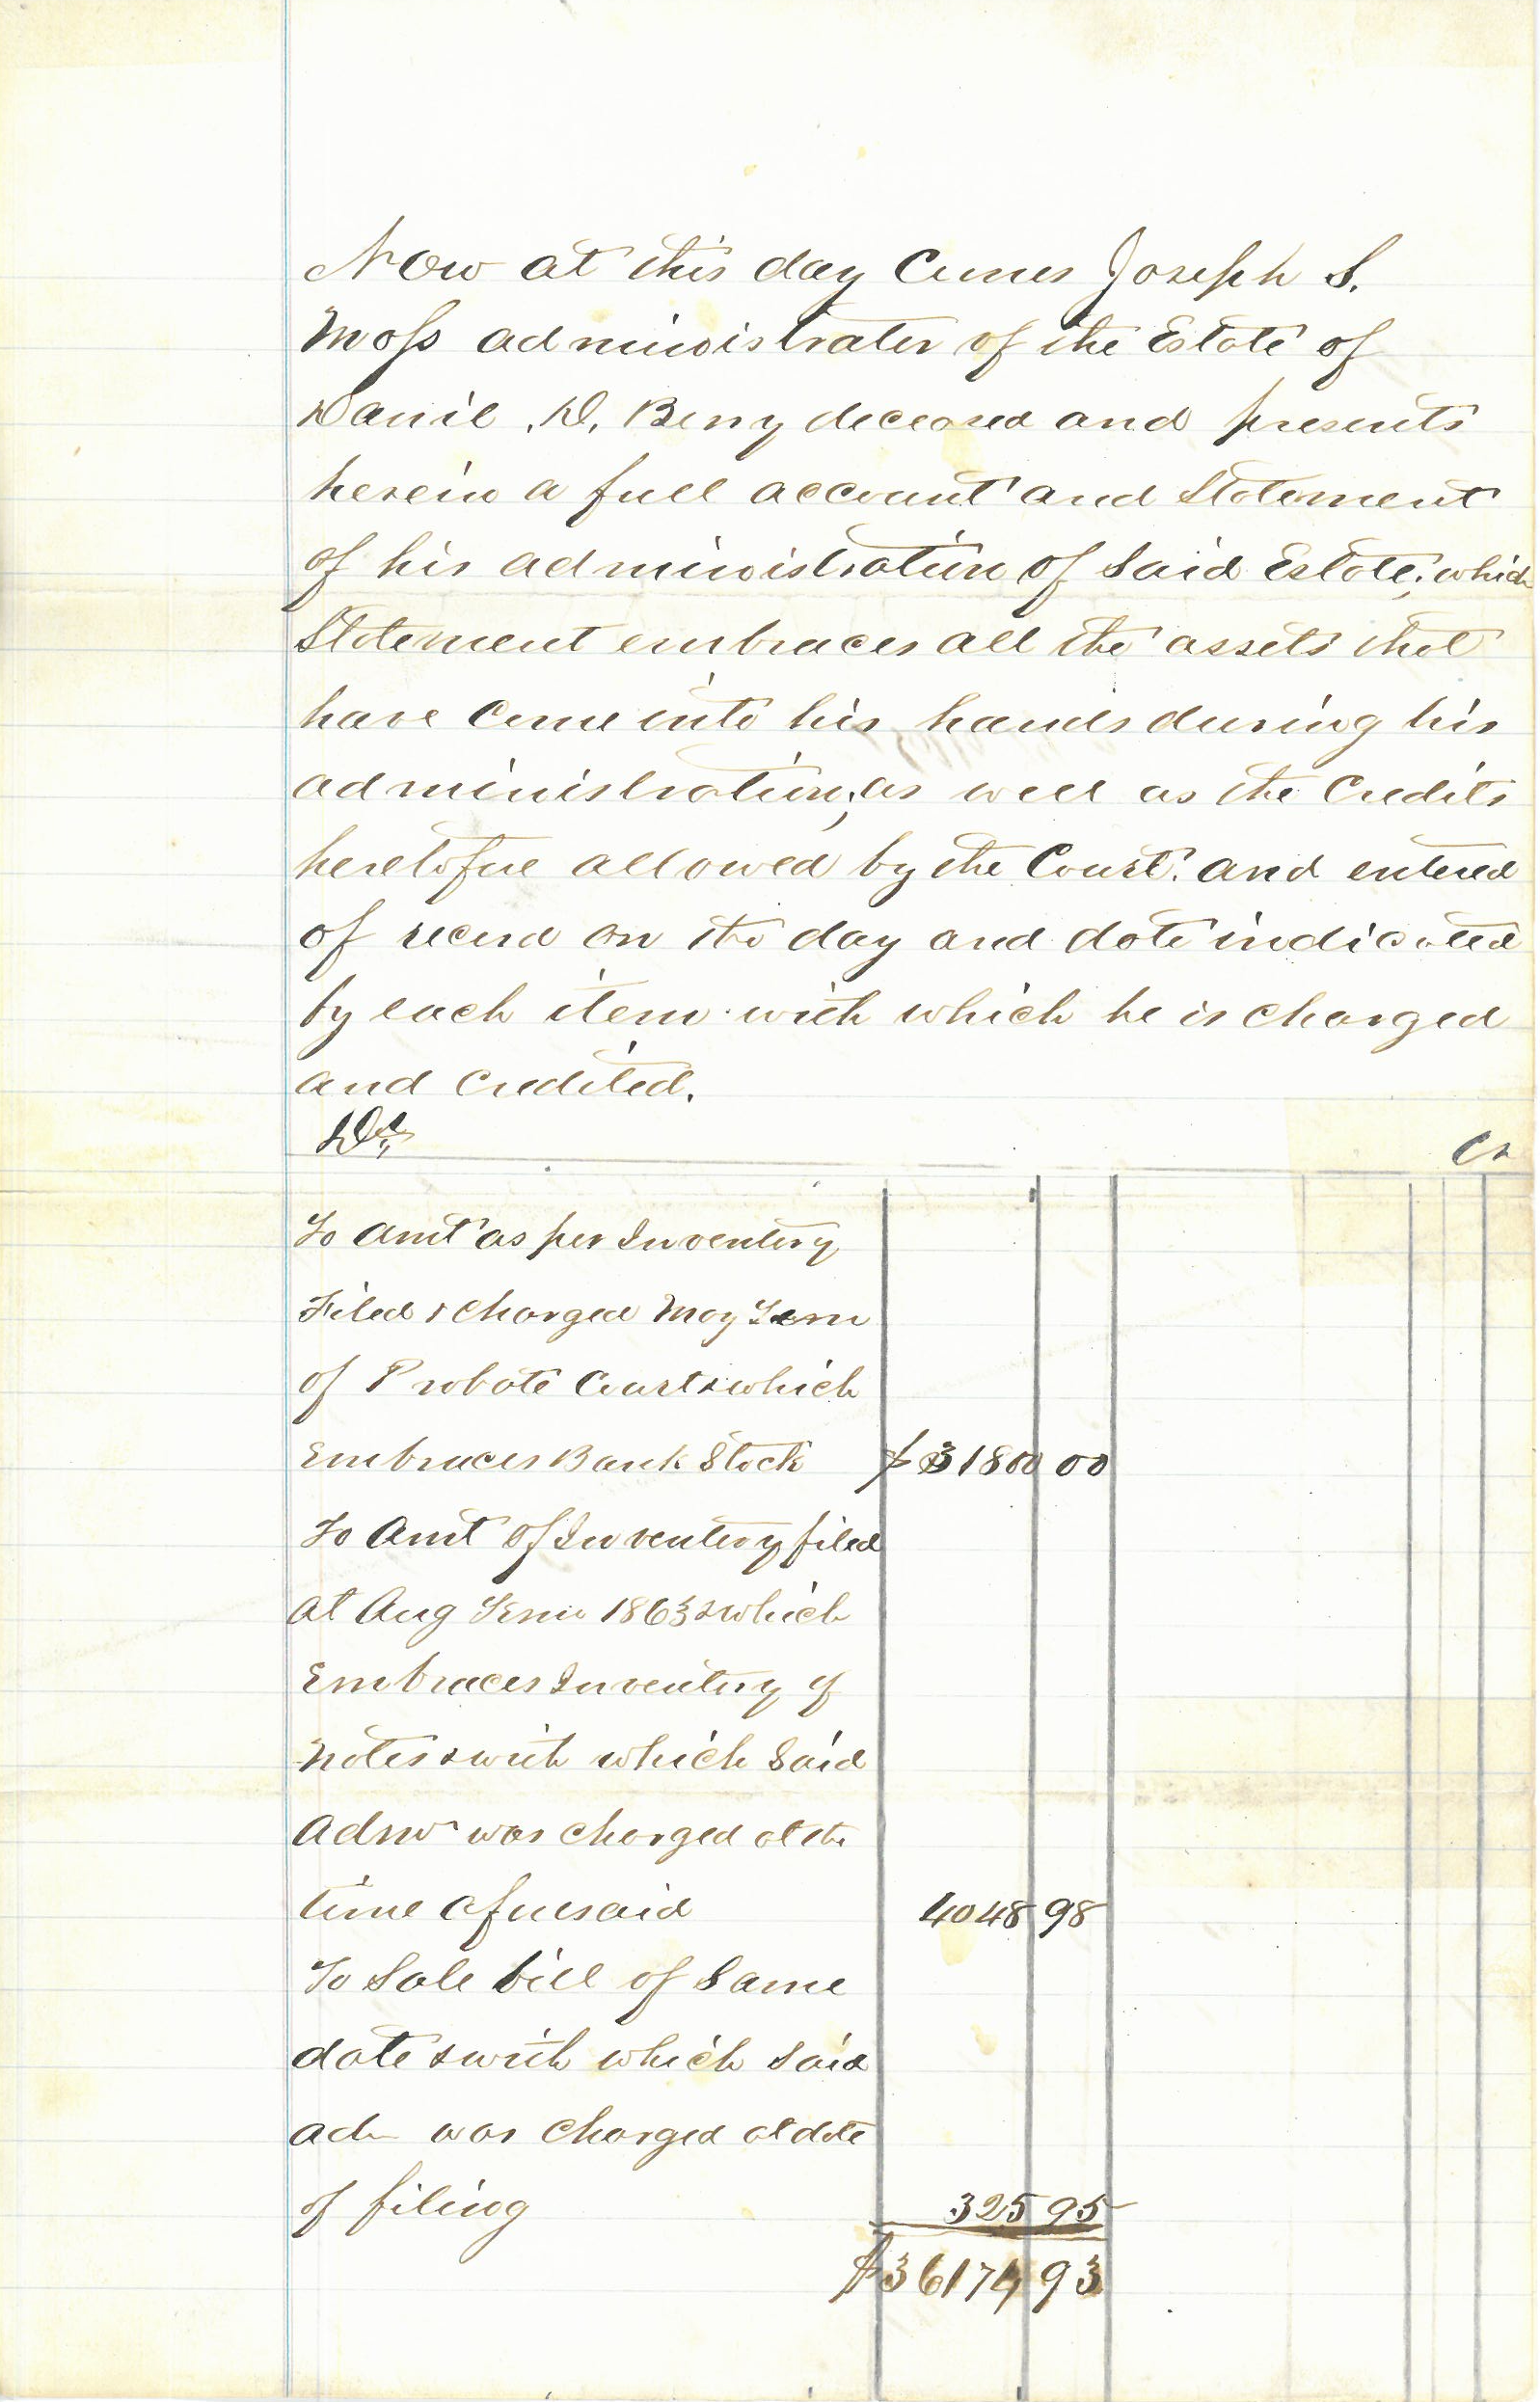 Now at this day Comes Joseph S.
Moss administrator of the Estate of
Daniel .D. Berry deceased and presents
herein a full account and Statement
of his administration of Said Estate; which
Statement embraces all the assets that
have Come into his hands during his
administration; as well as the Credits
heretofore allowed by the Court. and entered
of record on the day and date indicated
by each item with which he is Charged
and Credited.
Dr.
Cr
To Amt as per Inventory
Filed & Charged May Term
of Probate Court & which
Embraces Bank Stock $31800 00
To Amt of Inventory filed
at Aug Term 1863 & which
Embraces Inventory of
Notes & with which Said
Admr was Charged at the
time aforesaid 4048 98
To Sale bill of Same
date & with which Said
adr was Charged at date
of filing 325 95
$36174 93